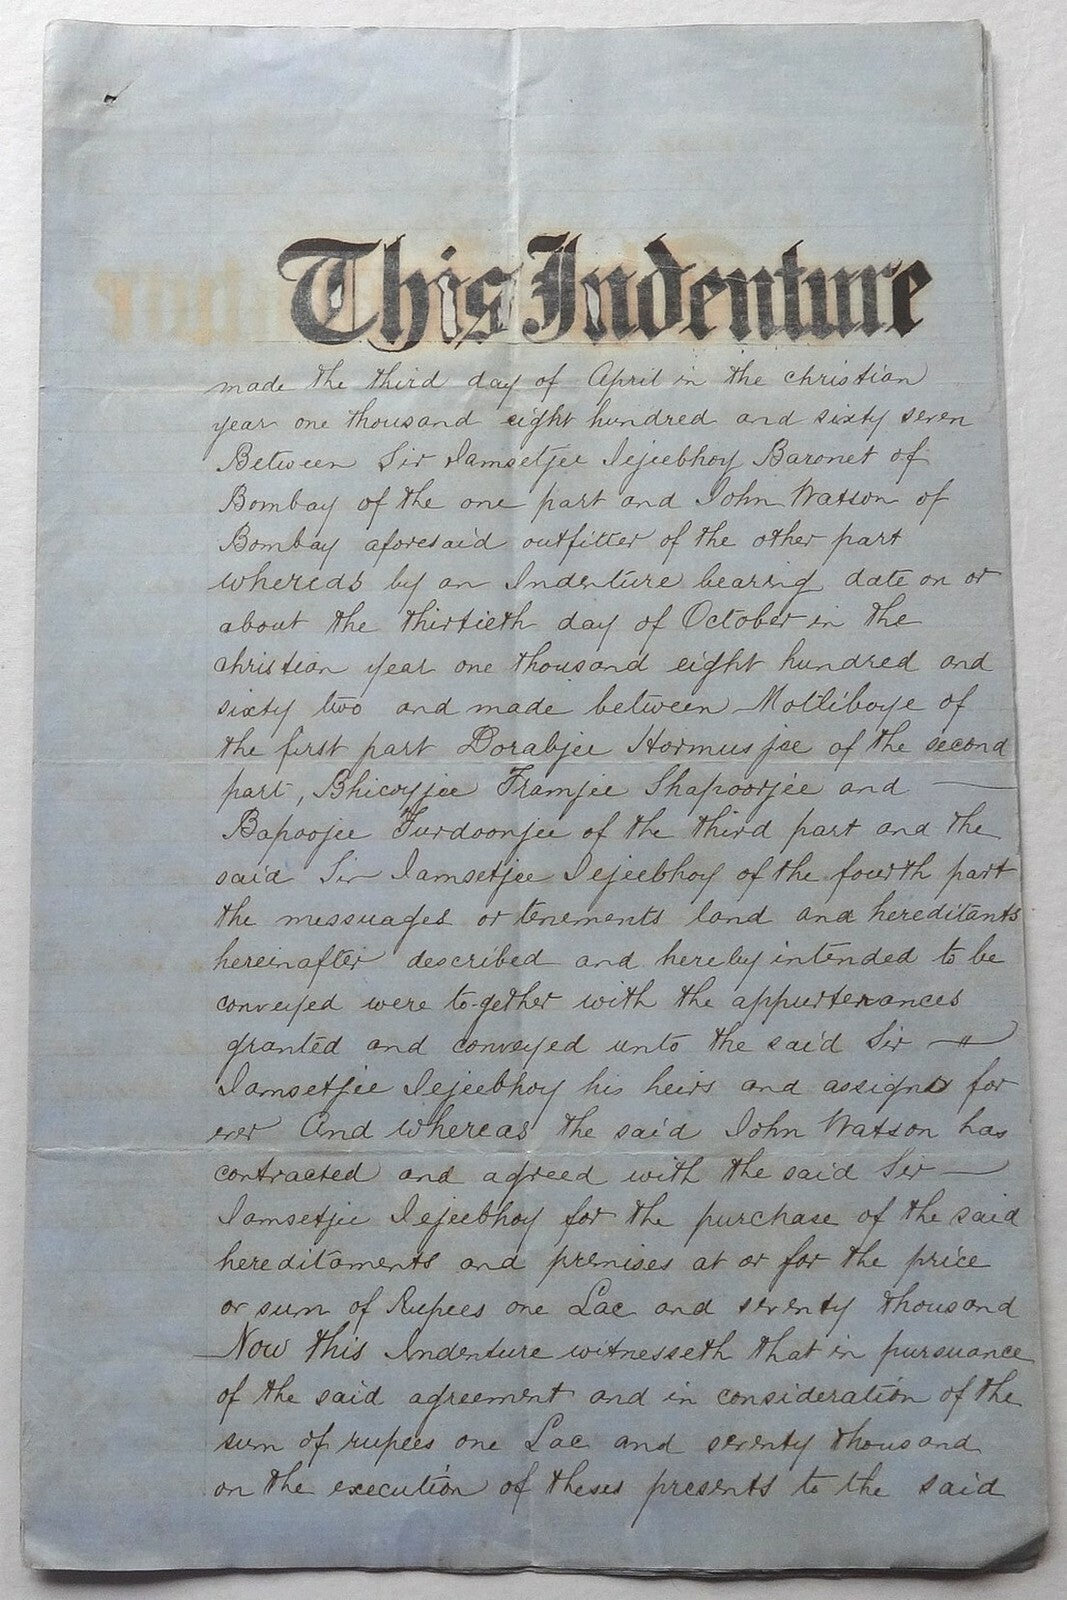 This Indenture
made the third day of April in the christian
year one thousand eight hundred and sixty seven
Between Sir Jamsetjee Jejeebhoy Baronet of
Bombay of the one part and John Watson of
Bombay aforesaid outfitter of the other part
whereas by an Indenture bearing date on or
about the thirtieth day of October in the
christian year one thousand eight hundred and
sixty two and made between Motlibaye of
the first part Dorabjee Hormusjee of the second
part, Bhicajee Framjee Shapoorjee and —
Bapoojee Furdoonjee of the third part and the
said Sir Jamsetjee Jejeebhoy of the fourth part
the messuages or tenements land and hereditants
hereinafter described and hereby intended to be
conveyed were together with the appurtenances
granted and conveyed unto the said Sir —
Jamsetjee Jejeebhoy his heirs and assigns for
ever And whereas the said John Watson has
contracted and agreed with the said Sir —
Jamsetjee Jejeebhoy for the purchase of the said
hereditaments and premises at or for the price
or sum of Rupees one Lac and seventy thousand
Now this Indenture witnesseth that in pursuance
of the said agreement and in consideration of the
sum of rupees one Lac and seventy thousand
on the execution of theses presents to the said